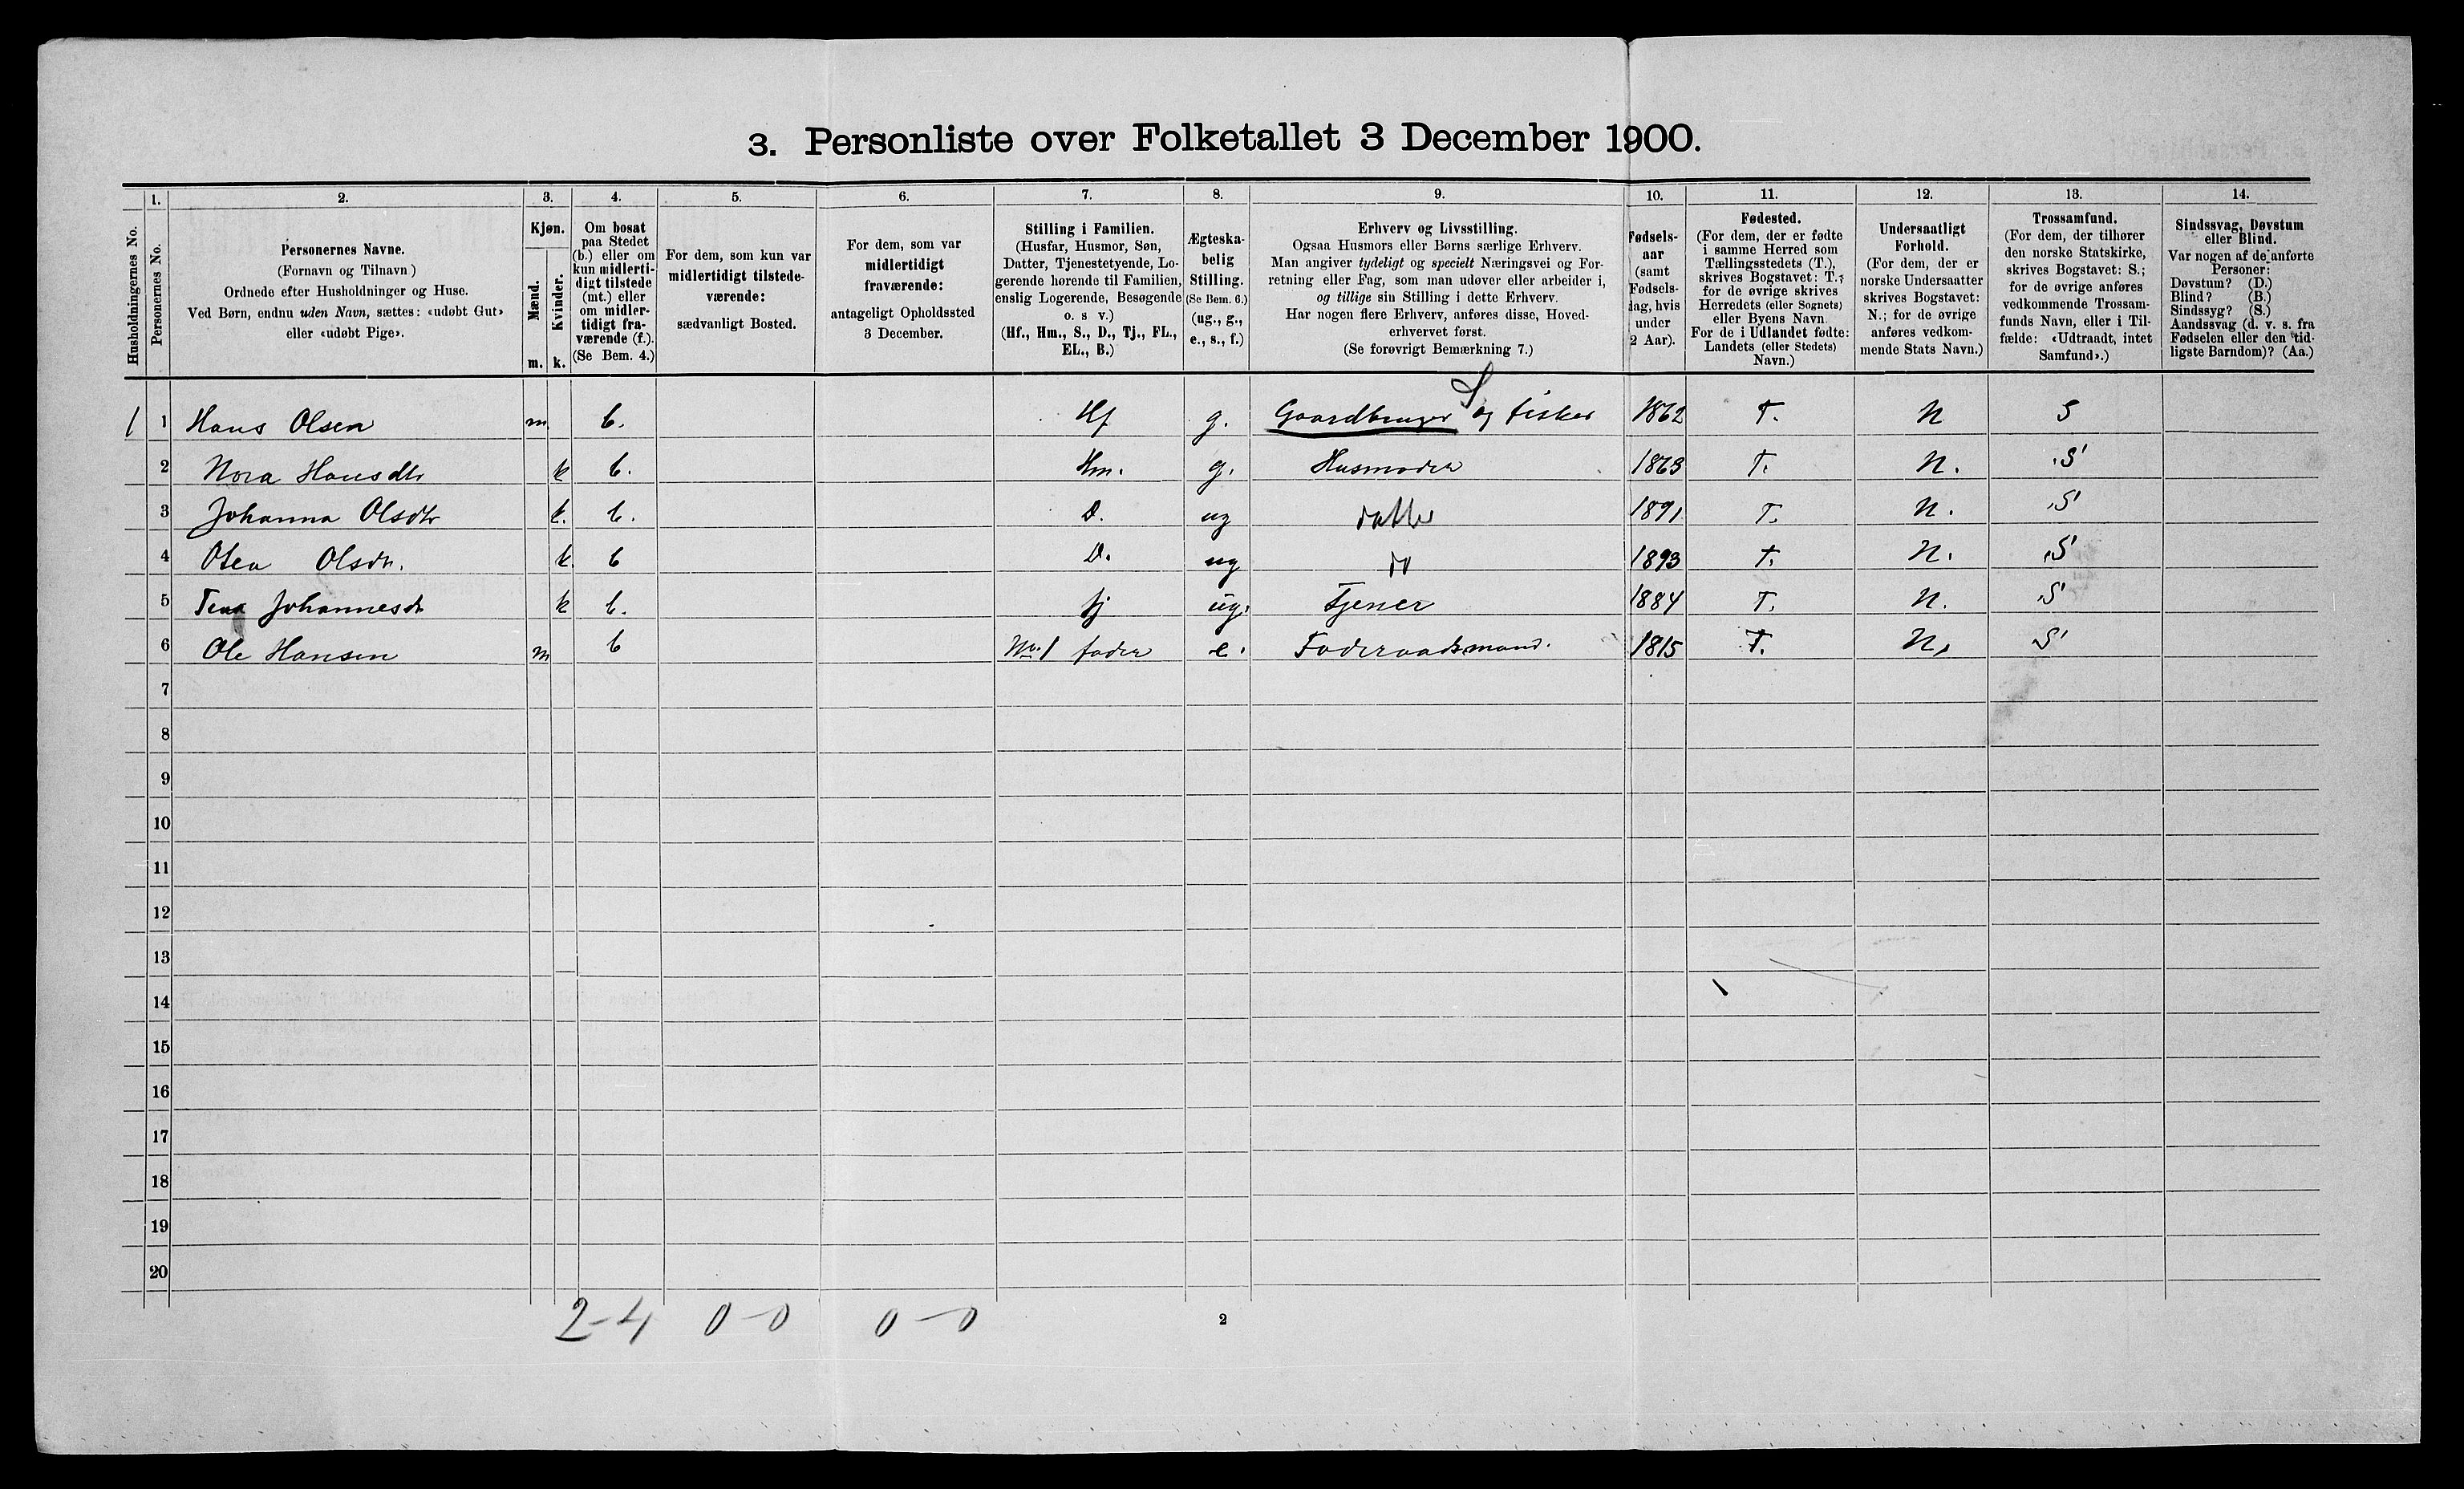 3. Personliste over Folketallet 3 December 1900.
Husholdningernes No.
1. Personernes No.
2. Personernes Navne.
(Fornavn og Tilnavn)
Ordnede efter Husholdninger og Huse.
Ved Børn, endnu uden Navn, sættes: «udøbt Gut»
eller «udøbt Pige».
3. Kjøn.
Mænd. m.
Kvinder. k.
4. Om bosat
paa Stedet
(b.) eller om
kun midlerti-
digt tilstede
(mt.) eller
om midler-
tidigt fra-
værende (f.).
(Se Bem. 4.)
5. For dem, som kun var
midlertidigt tilstede-
værende:
sædvanligt Bosted.
6. For dem, som var
midlertidigt
fraværende:
antageligt Opholdssted
3 December.
7. Stilling i Familien.
(Husfar, Husmor, Søn,
Datter, Tjenestetyende, Lo-
gerende hørende til Familien,
enslig Logerende, Besøgende
o. s v.)
(Hf., Hm., S., D., Tj., FL.,
EL., B.)
8. Ægteska-
belig
Stilling.
(Se Bem. 6.)
(ug., g.,
e., s., f.)
9. Erhverv og Livsstilling.
Ogsaa Husmors eller Børns særlige Erhverv.
Man angiver tydeligt og specielt Næringsvei og For-
retning eller Fag, som man udøver eller arbeider i,
og tillige sin Stilling i dette Erhverv.
Har nogen flere Erhverv, anføres disse, Hoved-
erhvervet først.
(Se forøvrigt Bemærkning 7.)
10. Fødsels-
aar
(samt
Fødsels-
dag, hvis
under
2 Aar).
11. Fødested.
(For dem, der er fødte
i samme Herred som
Tællingsstedets (T.),
skrives Bogstavet: T.;
for de øvrige skrives
Herredets (eller Sognets)
eller Byens Navn.
For de i Udlandet fødte:
Landets (eller Stedets)
Navn.)
12. Undersaatligt
Forhold.
(For dem, der er
norske Undersaatter
skrives Bogstavet:
N.; for de øvrige
anføres vedkom-
mende Stats Navn.)
13. Trossamfund.
(For dem, der tilhører
den norske Statskirke,
skrives Bogstavet: S.;
for de øvrige anføres
vedkommende Trossam-
funds Navn, eller i Til-
fælde: «Udtraadt, intet
Samfund».)
14. Sindssvag, Døvstum
eller Blind.
Var nogen af de anførte
Personer:
Døvstum? (D.)
Blind? (B.)
Sindssyg? (S.)
Aandssvag (d. v. s. fra
Fødselen eller den tid-
ligste Barndom)? (Aa.)
1 1 Hans Olsen m b. Hf g. Gaardbruger og fisker 1862 T. N S
2 Nora Hansdtr k b. Hm. g. Husmoder 1863 T. N. S
3 Johanna Olsdtr k. b. D. ug datter 1891 T. N. S
4 Olsdtr. k b D. ug do 1893 T. N. S
5 Johannesdt k b. tj ug. Tjener 1884 T. N. S
6 Ole Hansen m b No. 1 fader e. Foderaadsmand. 1815 T. N. S
7
8
9
10
11
12
13
14
15
16
17
18
19
20
2-4 0-0 0-0
2